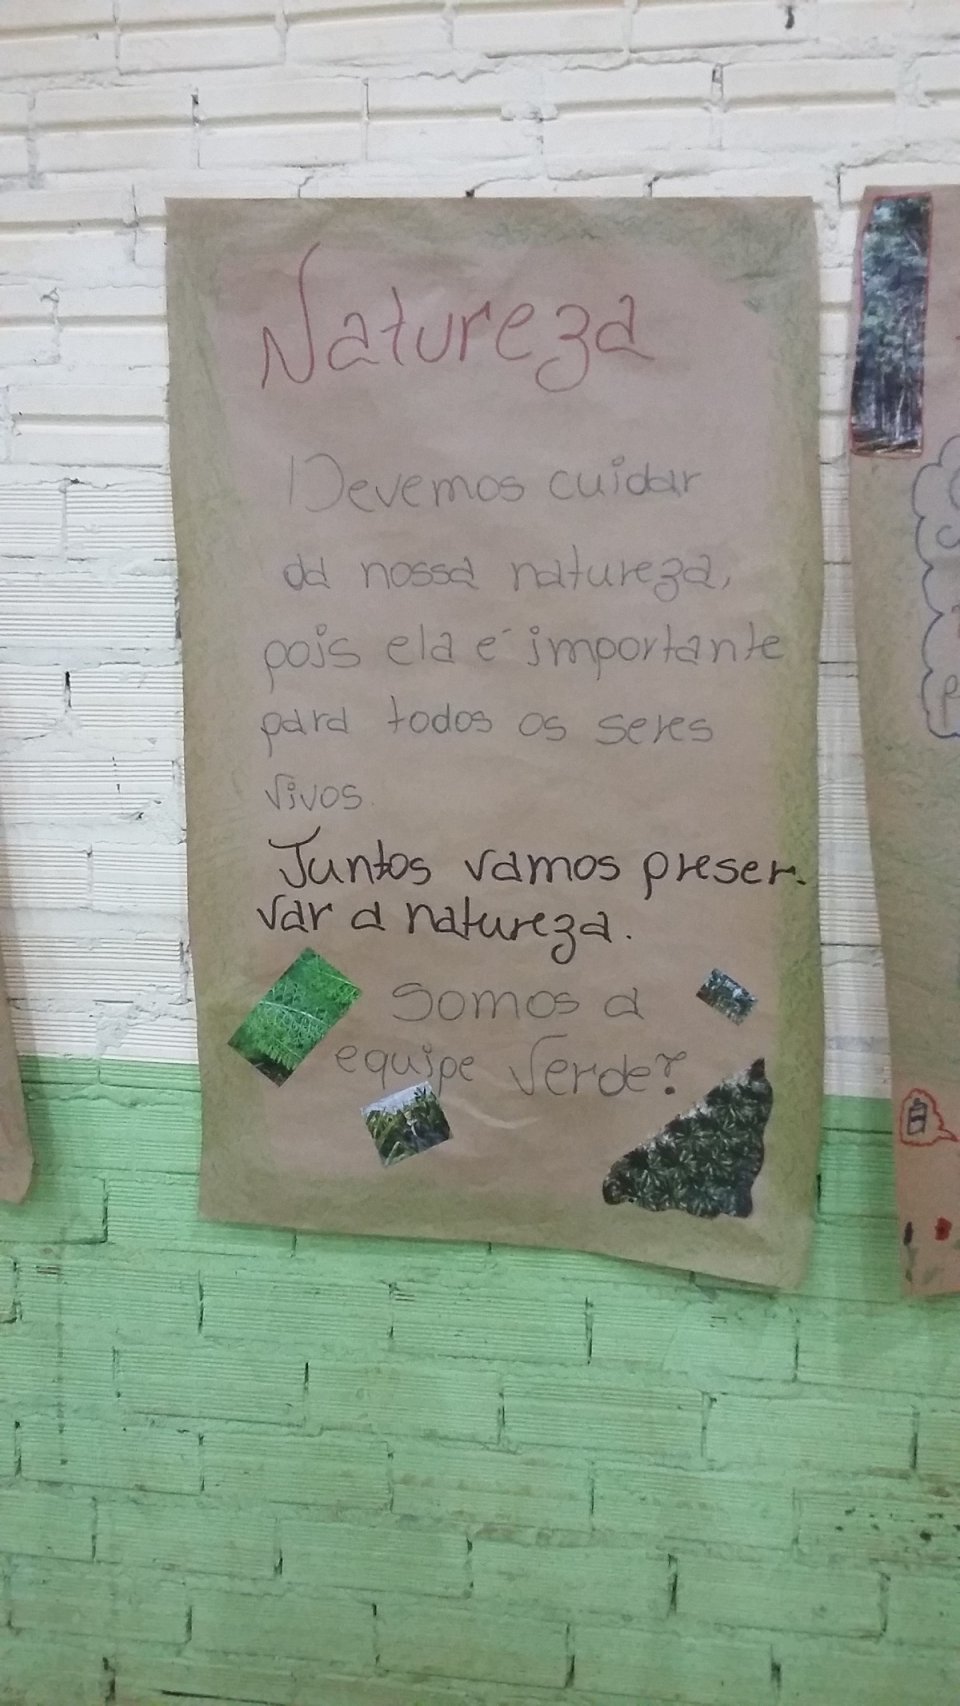 Natureza
Devemos cuidar
da nossa natureza,
pois ela é importante
para todos os seres
vivos.
Juntos vamos preser-
var a natureza.
Somos a
equipe Verde?